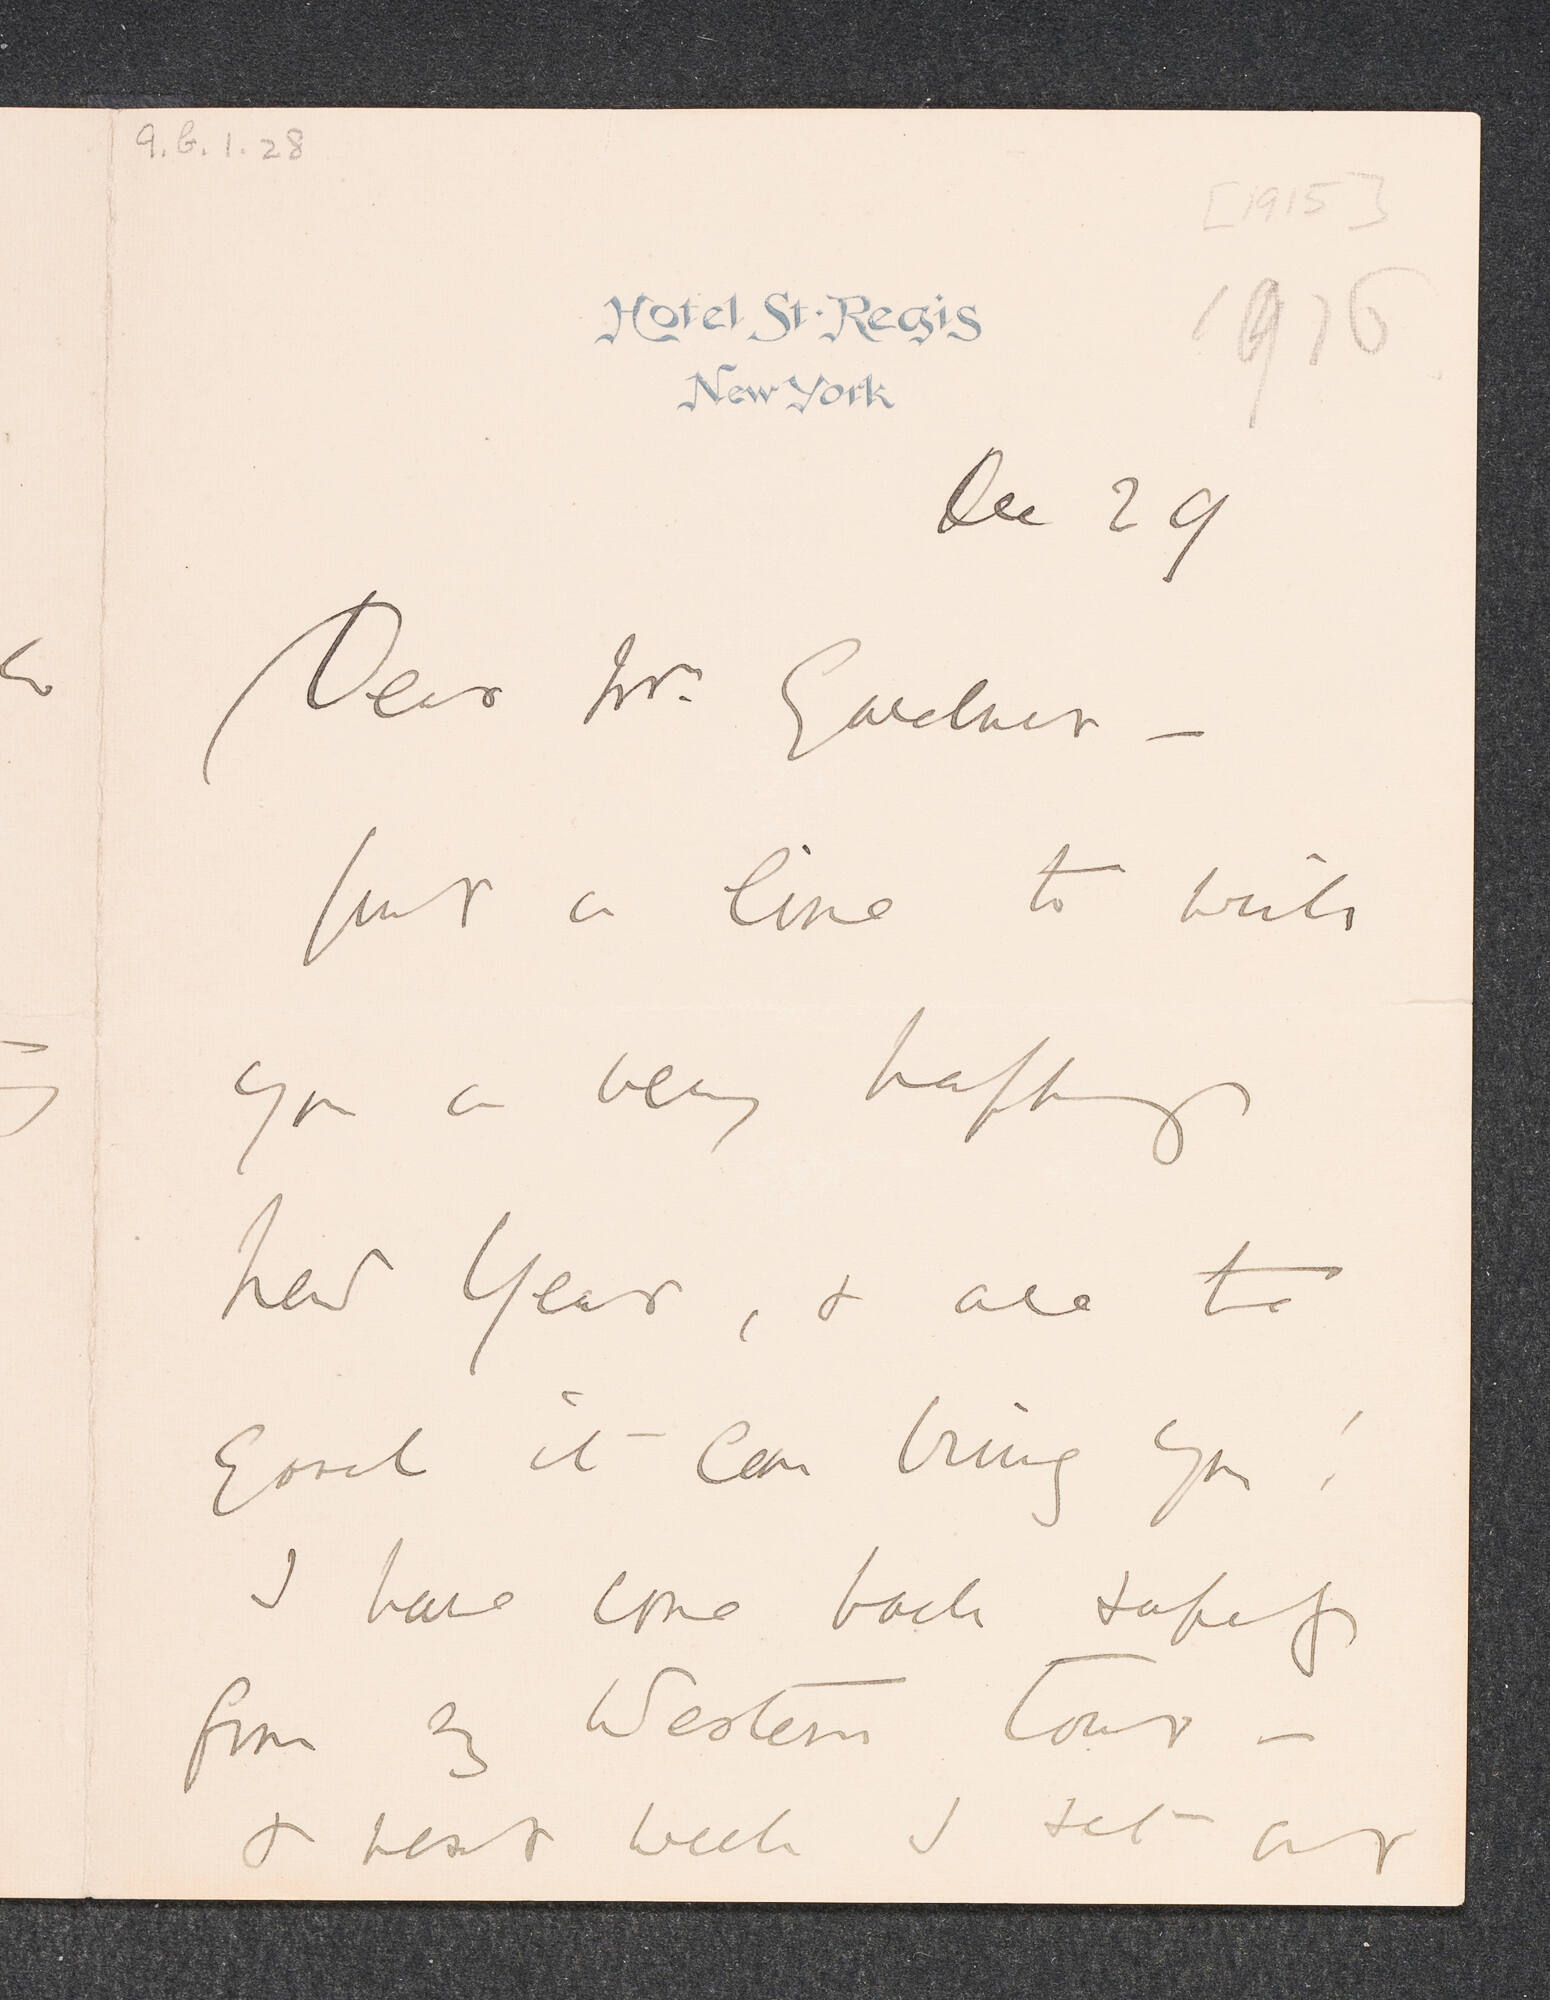 9.G.1.28
[1915]
1916
Hotel St. Regis
New York
Dec 29
Dear Mrs. Gardner –
Just a line to wish
you a very happy
New Year, & all the
good it can bring you!
I have come back safely
from my Western Tour –
& next week I set out